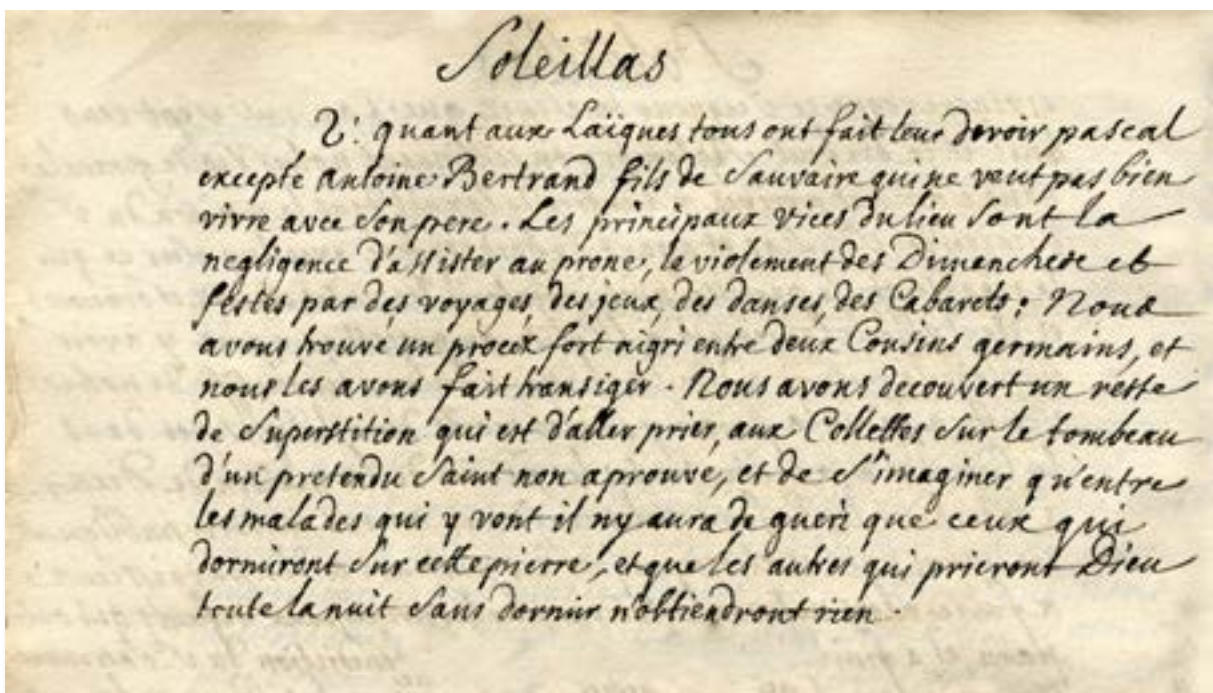 Soleillas
2: quant aux Laïques tous ont fait leur devoir pascal
excepté Antoine Bertrand fils de Sauvaire qui ne veut pas bien
vivre avec son pere. Les principaux vices du lieu sont la
negligence d'assister au prone, le violement des Dimanches et
festes par des voyages, des jeux, des danses, des Cabarets: Nous
avons trouvé un procéx fort aigri entre deux Cousins germains, et
nous les avons fait transiger. Nous avons decouvert un reste
de superstition qui est d'aller prier, aux Collettes sur le tombeau
d'un pretendu saint non aprouvé, et de s'imaginer qu'entre
les malades qui y vont il ny aura de gueri que ceux qui
dormiront sur cette pierre, et que les autres qui prieront Dieu
toute la nuit sans dormir n'obtiendront rien.